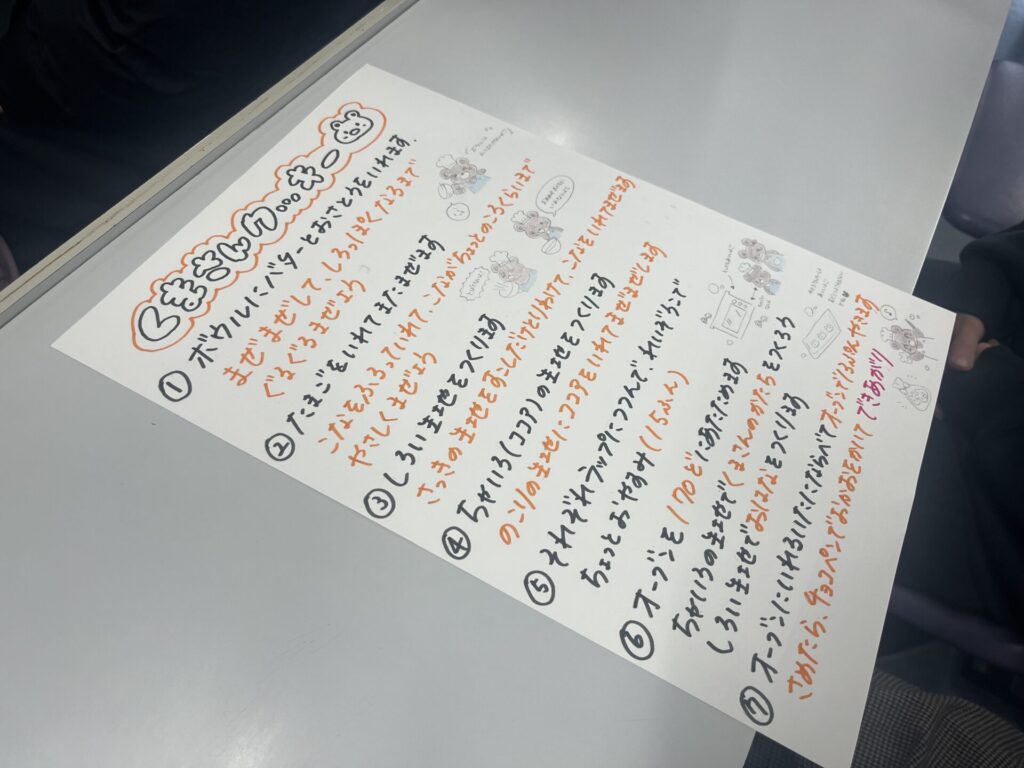 くまさんクッキー
① ボウルにバターとおさとうをいれます.
まぜまぜして、しろっぽくなるまで
ぐるぐるまぜよう
② たまごをいれてまたまぜます
こなをふるっていれて、こながちょっとのこるくらいまで
やさしくまぜよう
③ しろい生地をつくります
さっきの生地をすこしだけとりわけて、こなをいれてまぜます
④ ちゃいろ(ココア)の生地をつくります
のこりの生地にココアをいれてまぜまぜします
⑤ それぞれラップにつつんで、れいぞうこで
ちょっとおやすみ(15ふん)
⑥ オーブンを170どにあたためます
ちゃいろの生地でくまさんのかたちをつくろう
しろい生地でおはなをつくります
⑦ オーブンにいれるいたにならべてオーブンで15ふんやきます
さめたら、チョコペンでおかおをかいてできあがり